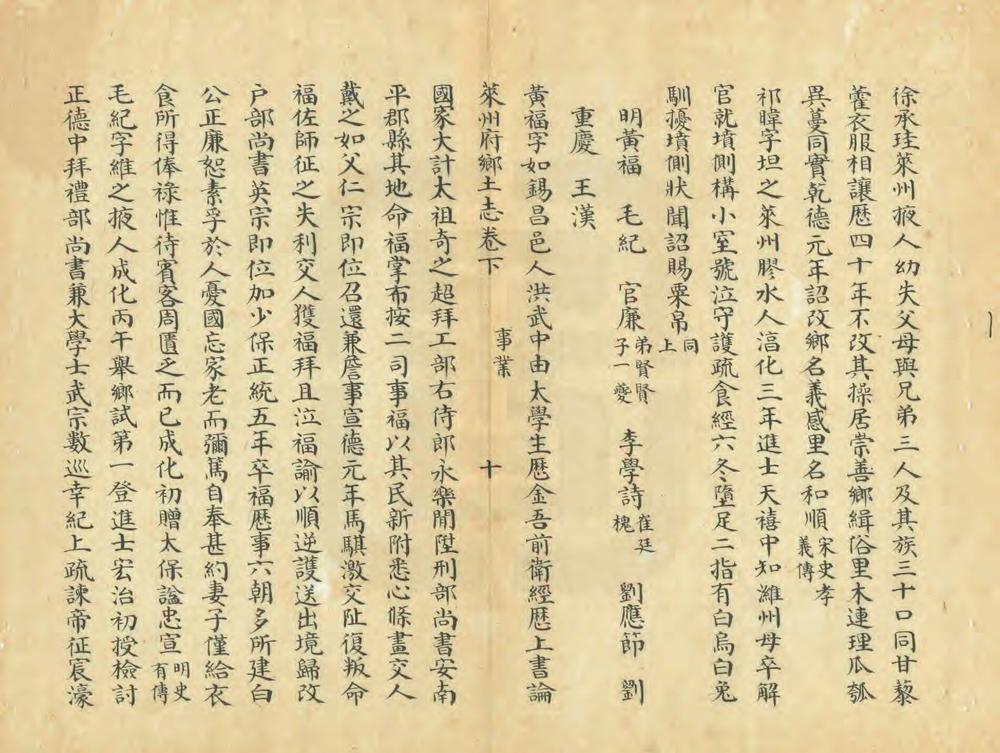 徐承珪萊州掖人幼失父母與兄弟三人及其族三十口同甘藜
藿衣服相讓歷四十年不改其操居崇善鄉緝俗里木連理瓜瓠
異蔓同實乾德元年詔改鄉名義感里名和順宋史孝義傳
祁暐字坦之萊州膠水人淳化三年進士天禧中知濰州母卒解
官就墳側構小室號泣守護疏食經六冬墮足二指有白烏白兔
馴擾墳側狀聞詔賜粟帛同上
明黃福　毛紀　官廉弟賢賢子一夔　李學詩崔廷槐　劉應節　劉
重慶　王漢
黃福字如錫昌邑人洪武中由太學生歷金吾前衛經歷上書論
萊州府鄉土志卷下　事業　十
國家大計太祖奇之超拜工部右侍郎永樂間陞刑部尚書安南
平郡縣其地命福掌布按二司事福以其民新附悉心條畫交人
戴之如父仁宗即位召還兼詹事宣德元年馬騏激交阯復叛命
福佐師征之失利交人獲福拜且泣福諭以順逆護送出境歸改
戶部尚書英宗即位加少保正統五年卒福歷事六朝多所建白
公正廉恕素孚於人憂國忘家老而彌篤自奉甚約妻子僅給衣
食所得俸祿惟待賓客周匱乏而已成化初贈太保諡忠宣明史有傳
毛紀字維之掖人成化丙午舉鄉試第一登進士宏治初授檢討
正德中拜禮部尚書兼大學士武宗數巡幸紀上疏諫帝征宸濠